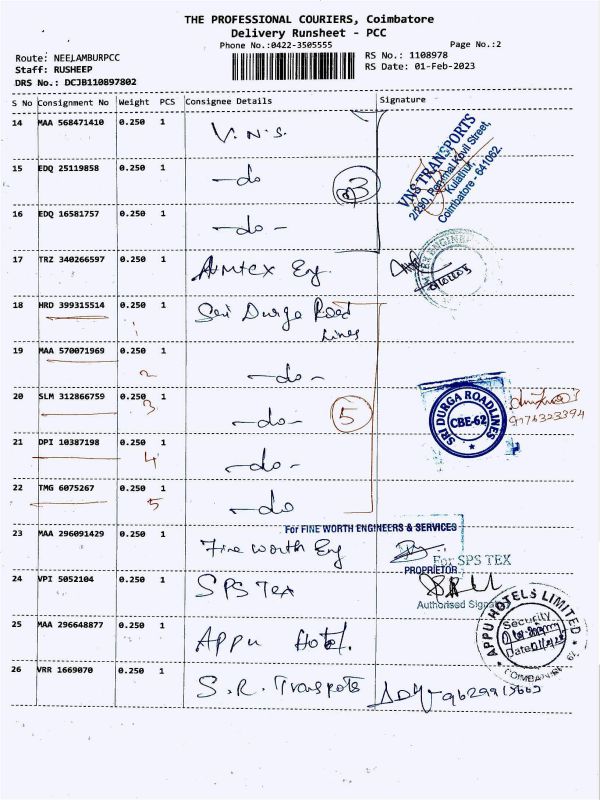 THE PROFESSIONAL COURIERS, Coimbatore
Delivery Runsheet - PCC
Phone No.:0422-3505555
Page No.:2
Route: NEELAMBURPCC
RS No.: 1108978
Staff: RUSHEEP
RS Date: 01-Feb-2023
DRS No.: DCJB110897802
S No Consignment No Weight PCS Consignee Details Signature
14 MAA 568471410 0.250 1 V.N.S.
15 EDQ 25119858 0.250 1 -do 3
16 EDQ 16581757 0.250 1 -do-
VNS TRANSPORTS
2/290, Perumal Kovil Street,
Kulathur,
Coimbatore - 641062.
17 TRZ 340266597 0.250 1 Armtex Eng
18 HRD 399315514 0.250 1 Sri Durga Road
Lines
1
19 MAA 570071969 0.250 1 -do-
2
20 SLM 312866759 0.250 1 -do-
3
5
SRI DURGA ROADLINES
CBE-62
21 DPI 10387198 0.250 1 -do-
4
22 TMG 6075267 0.250 1 -do
5
For FINE WORTH ENGINEERS & SERVICES
23 MAA 296091429 0.250 1 Fine worth Eng
PROPRIETOR
For SPS TEX
24 VPI 5052104 0.250 1 SPS Tex
Authorised Signatory
25 MAA 296648877 0.250 1 Appu Hotel.
APPU HOTELS LIMITED
Security
Date
26 VRR 1669070 0.250 1 S.R. Transpots